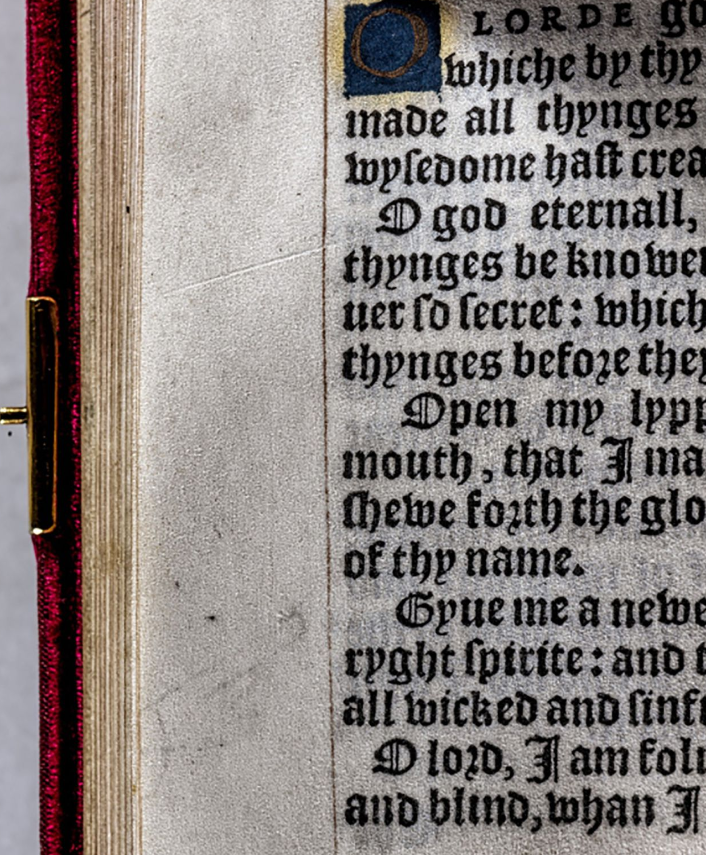 O LORDE go
whiche by thy
made all thynges
wysedome hast crea
O god eternall,
thynges be knowen
uer so secret: which
thynges before they
Open my lypp
mouth, that I ma
shewe forth the glo
of thy name.
Gyue me a newe
ryght spirite: and t
all wicked and sinf
O lord, I am foly
and blind, whan I